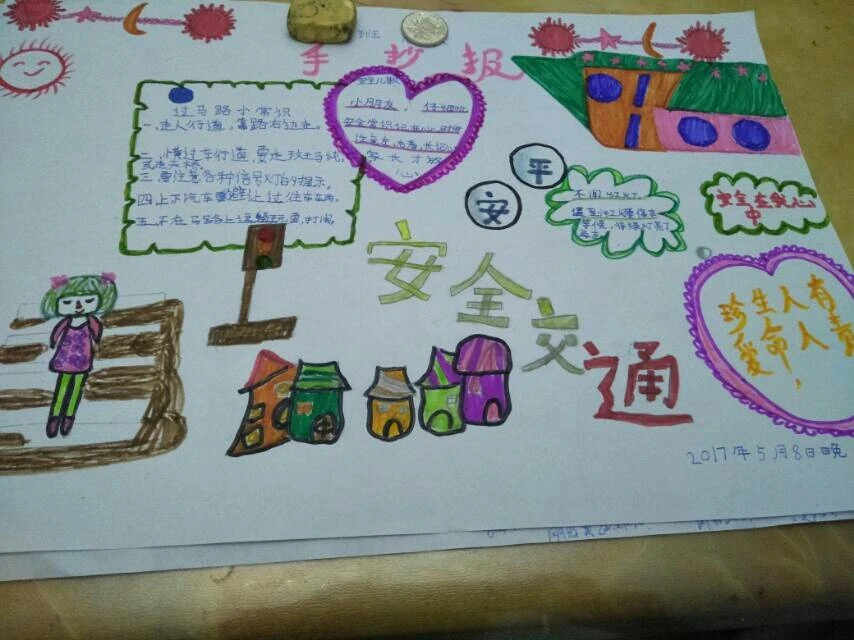 班
手抄报
过马路小常识
一、走人行道，靠路右边走。
二、横过车行道，要走斑马线，
三、要注意各种信号灯的提示。
四、上下汽车要避让过往车辆。
五、不在马路上逗留玩耍，打闹。
安全儿歌
小朋友，仔细听
安全常识记在心
家长才放
心
平
安
不闯红灯，
遇到红灯要停在
等候，待绿灯亮了
再走
安全在我心
中
安全交通
珍生人有
爱命人责
，
2017年5月8日晚